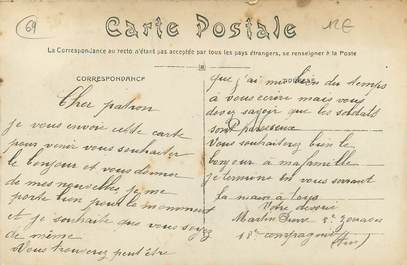 69
ME
Carte Postale
La Correspondance au recto n'étant pas acceptée par tous les pays étrangers, se renseigner à la Poste
CORRESPONDANCE
Cher patron
je vous envoie cette carte
pour venir vous souhaiter
le bonjour et vous donner
de mes nouvelles je me
porte bien pour le moment
et je souhaite que vous soyez
de même
Vous trouverez peut être
que j'ai mis bien du temps
à vous écrire mais vous
devez savoir que les soldats
sont paresseux
Vous souhaiterez bien le
bonjour à ma famille
je termine en vous serrant
la main à tous
Votre dévoué
Martin 8e zouaves
18e compagnie